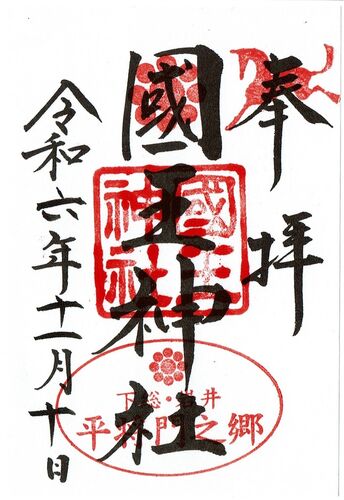 奉拝
國王神社
國王神社
下総・岩井
平将門之郷
令和六年十一月十日